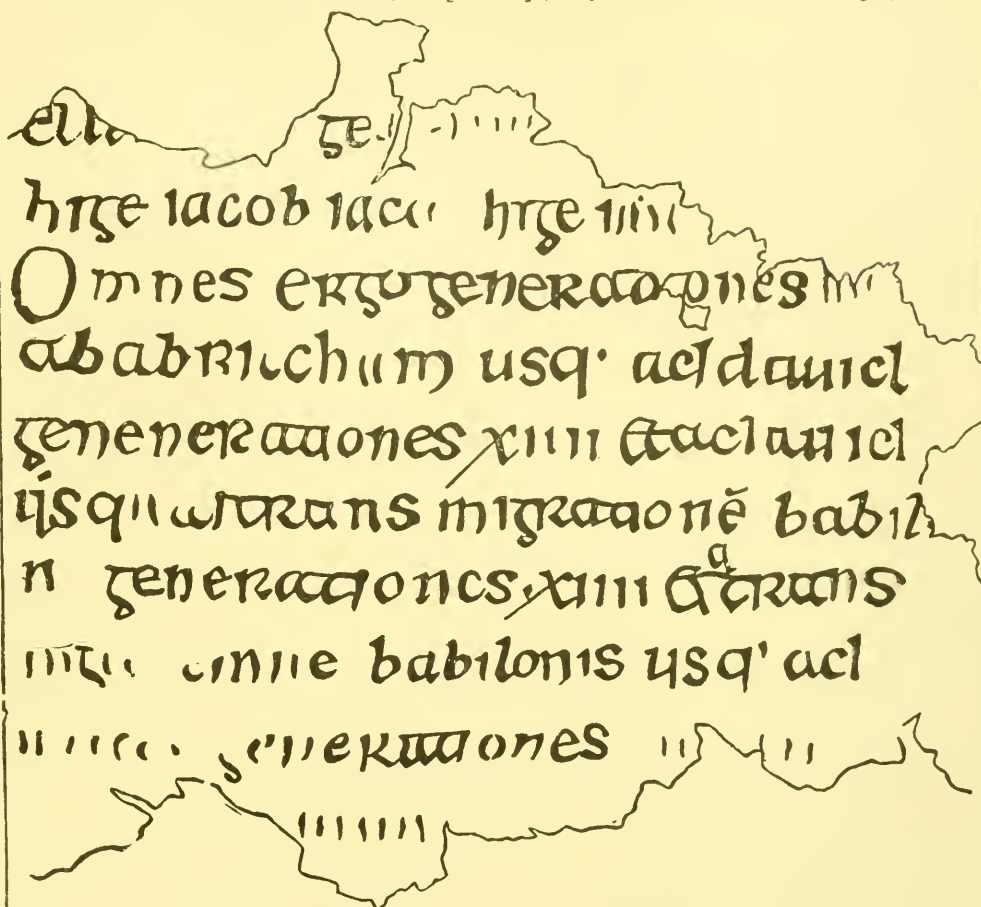 ella ge
hrge iacob iaco hrge
Omnes ergo generationes
ab abracham usq' ad dauid
genenerationes xiiii et a dauid
usqu transmigrationē babil
n generationes xiiii et a trans
babilonis usq' ad
generationes